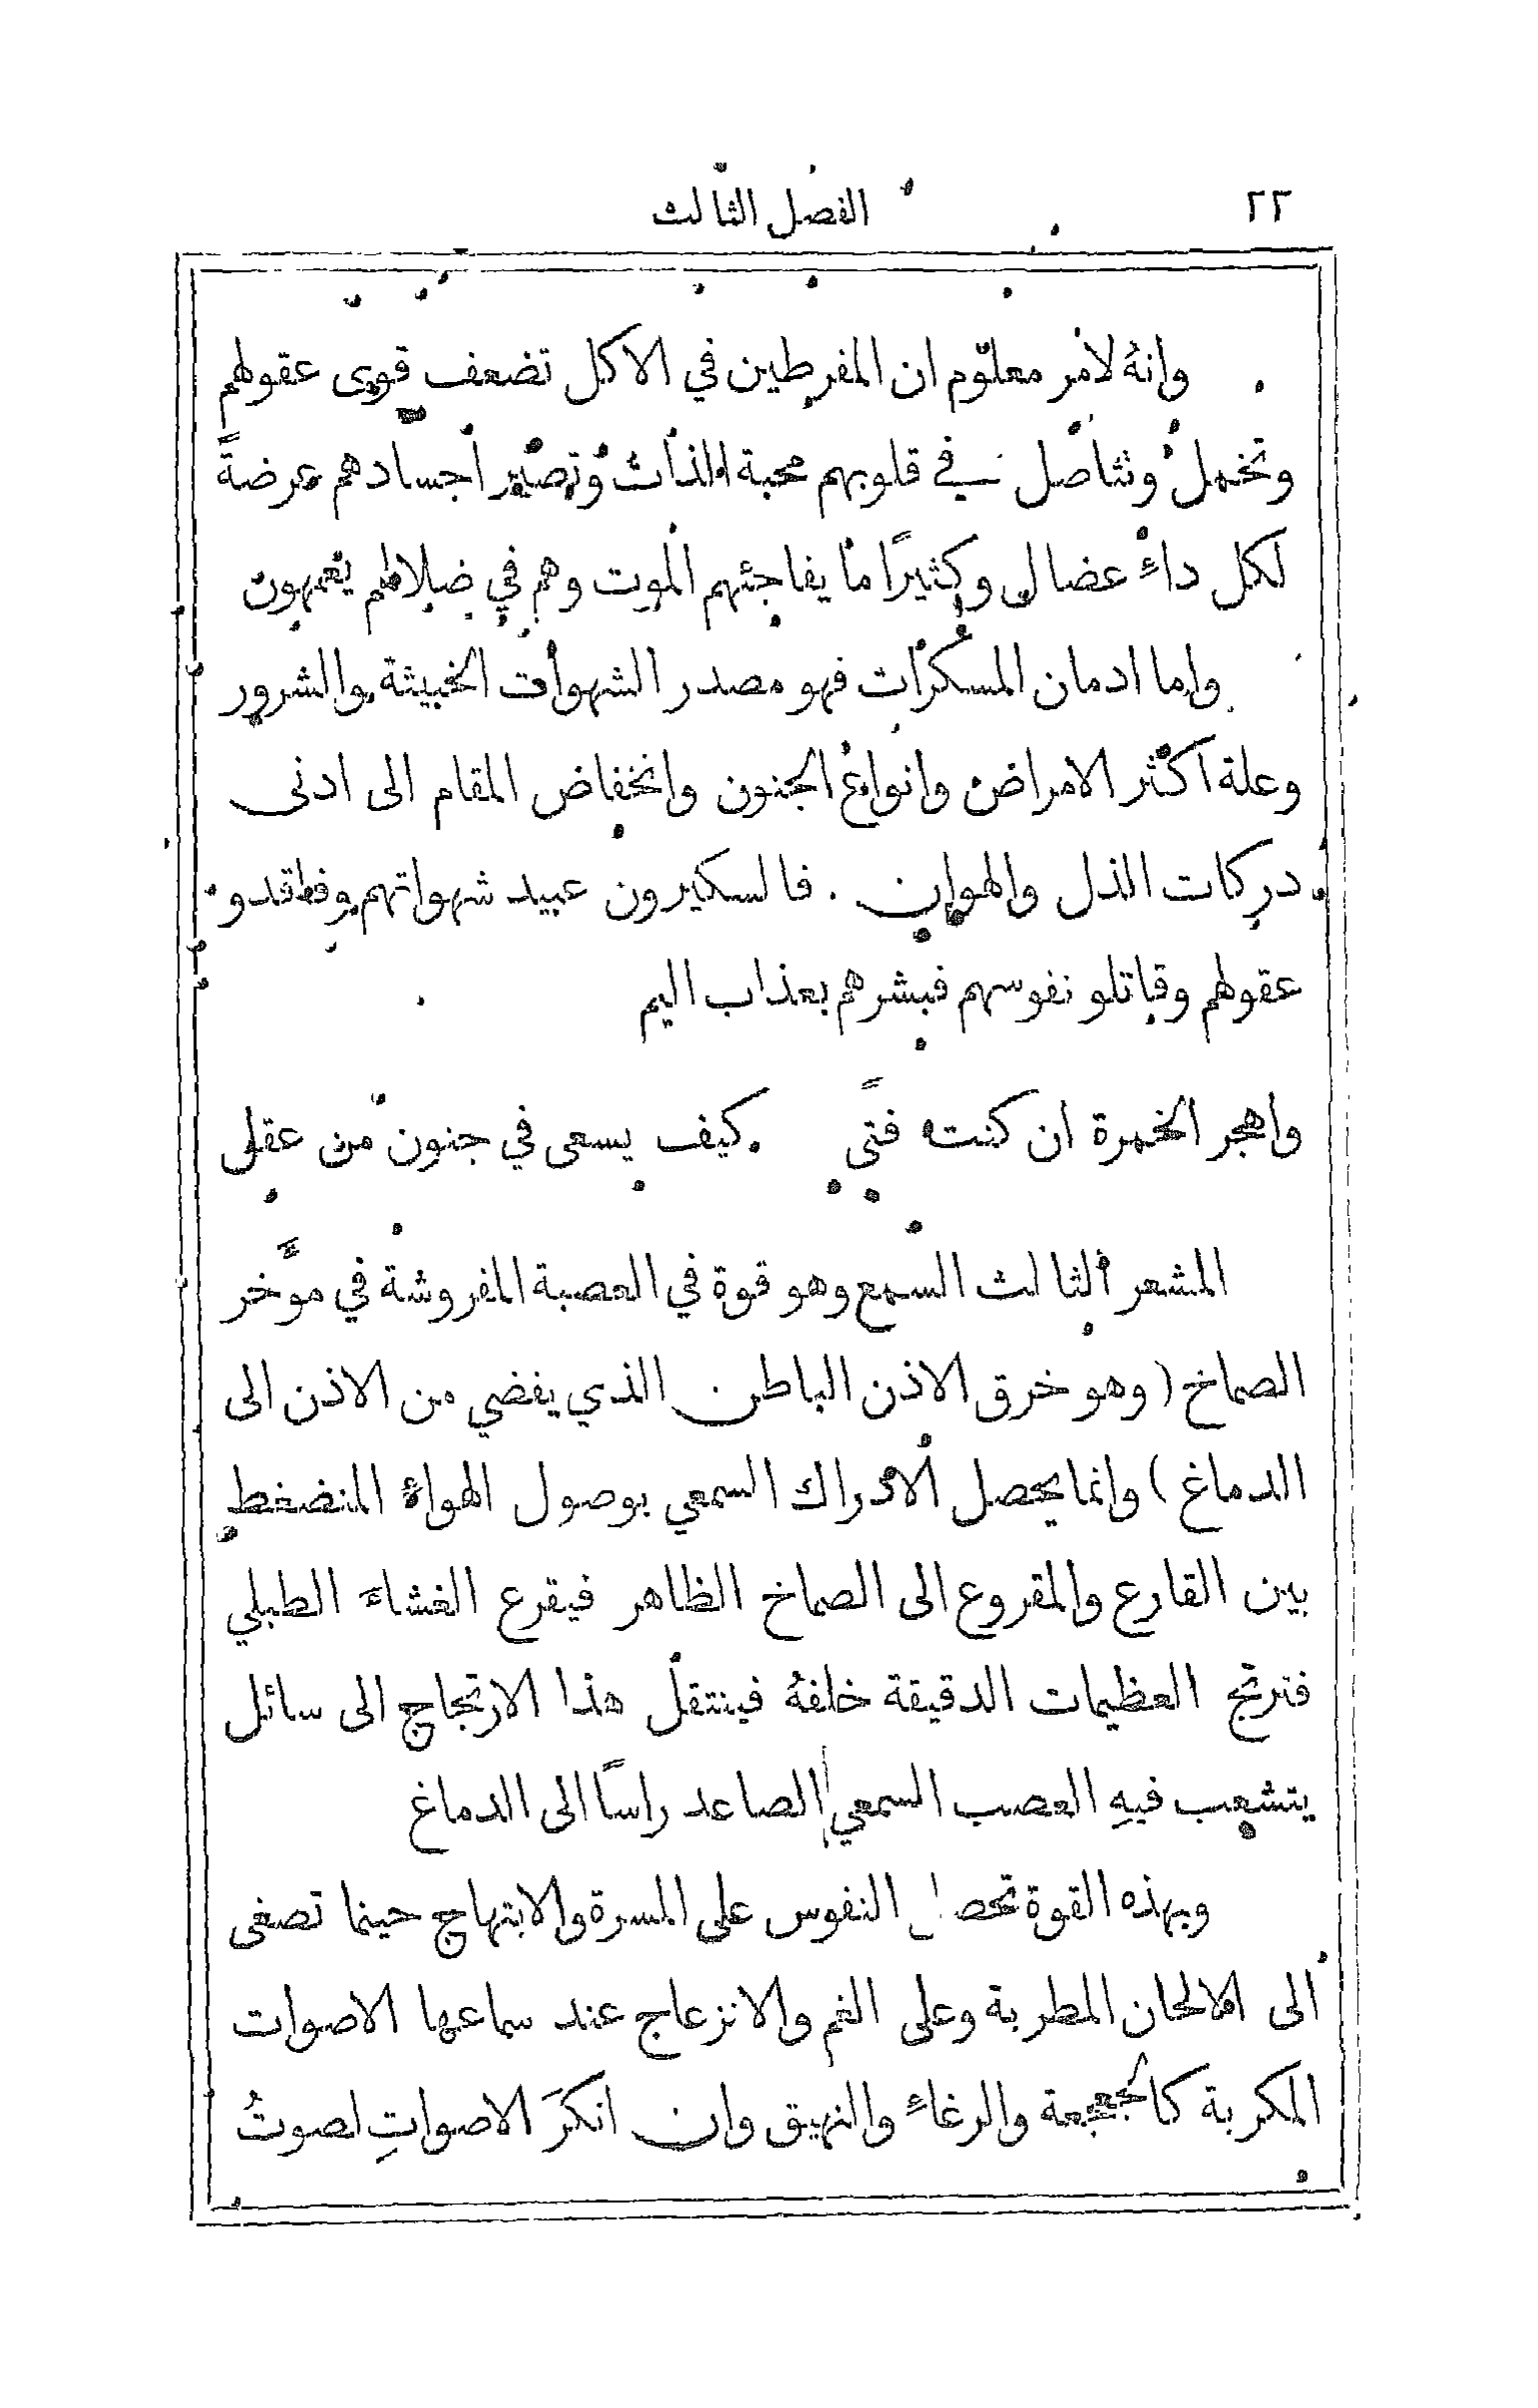 ٢٢ الفصل الثالث
وانهُ لامر معلوم ان المفرطين في الاكل تضعف قوى عقولهم
وتخمل وتتأصل في قلوبهم محبة اللذات وتصير اجسادهم عرضةً
لكل داءٍ عضال وكثيرًا ما يفاجئهم الموت وهم في ضلالهم يعمهون
واما ادمان المسكرات فهو مصدر الشهوات الخبيثة والشرور
وعلة اكثر الامراض وانواع الجنون وانخفاض المقام الى ادنى
دركات الذل والهوان . فالسكيرون عبيد شهواتهم وفاقدو
عقولهم وقاتلو نفوسهم فبشرهم بعذاب اليم
واهجر الخمرة ان كنت فتًى كيف يسعى في جنون من عقل
المشعر الثالث السمع وهو قوة في العصبة المفروشة في موَّخر
الصماخ ( وهو خرق الاذن الباطن الذي يفضي من الاذن الى
الدماغ ) وانما يحصل الادراك السمعي بوصول الهواءِ المنضغط
بين القارع والمقروع الى الصماخ الظاهر فيقرع الغشاءَ الطبلي
فترتج العظيمات الدقيقة خلفهُ فينتقل هذا الارتجاج الى سائل
يتشعب فيهِ العصب السمعي الصاعد راسًا الى الدماغ
وبهذه القوة تحصل النفوس على المسرة والابتهاج حينما تصغى
الى الالحان المطربة وعلى الغم والانزعاج عند سماعها الاصوات
المكربة كالجعجعة والرغاءِ والنهيق وان انكرَ الاصواتِ لصوتُ